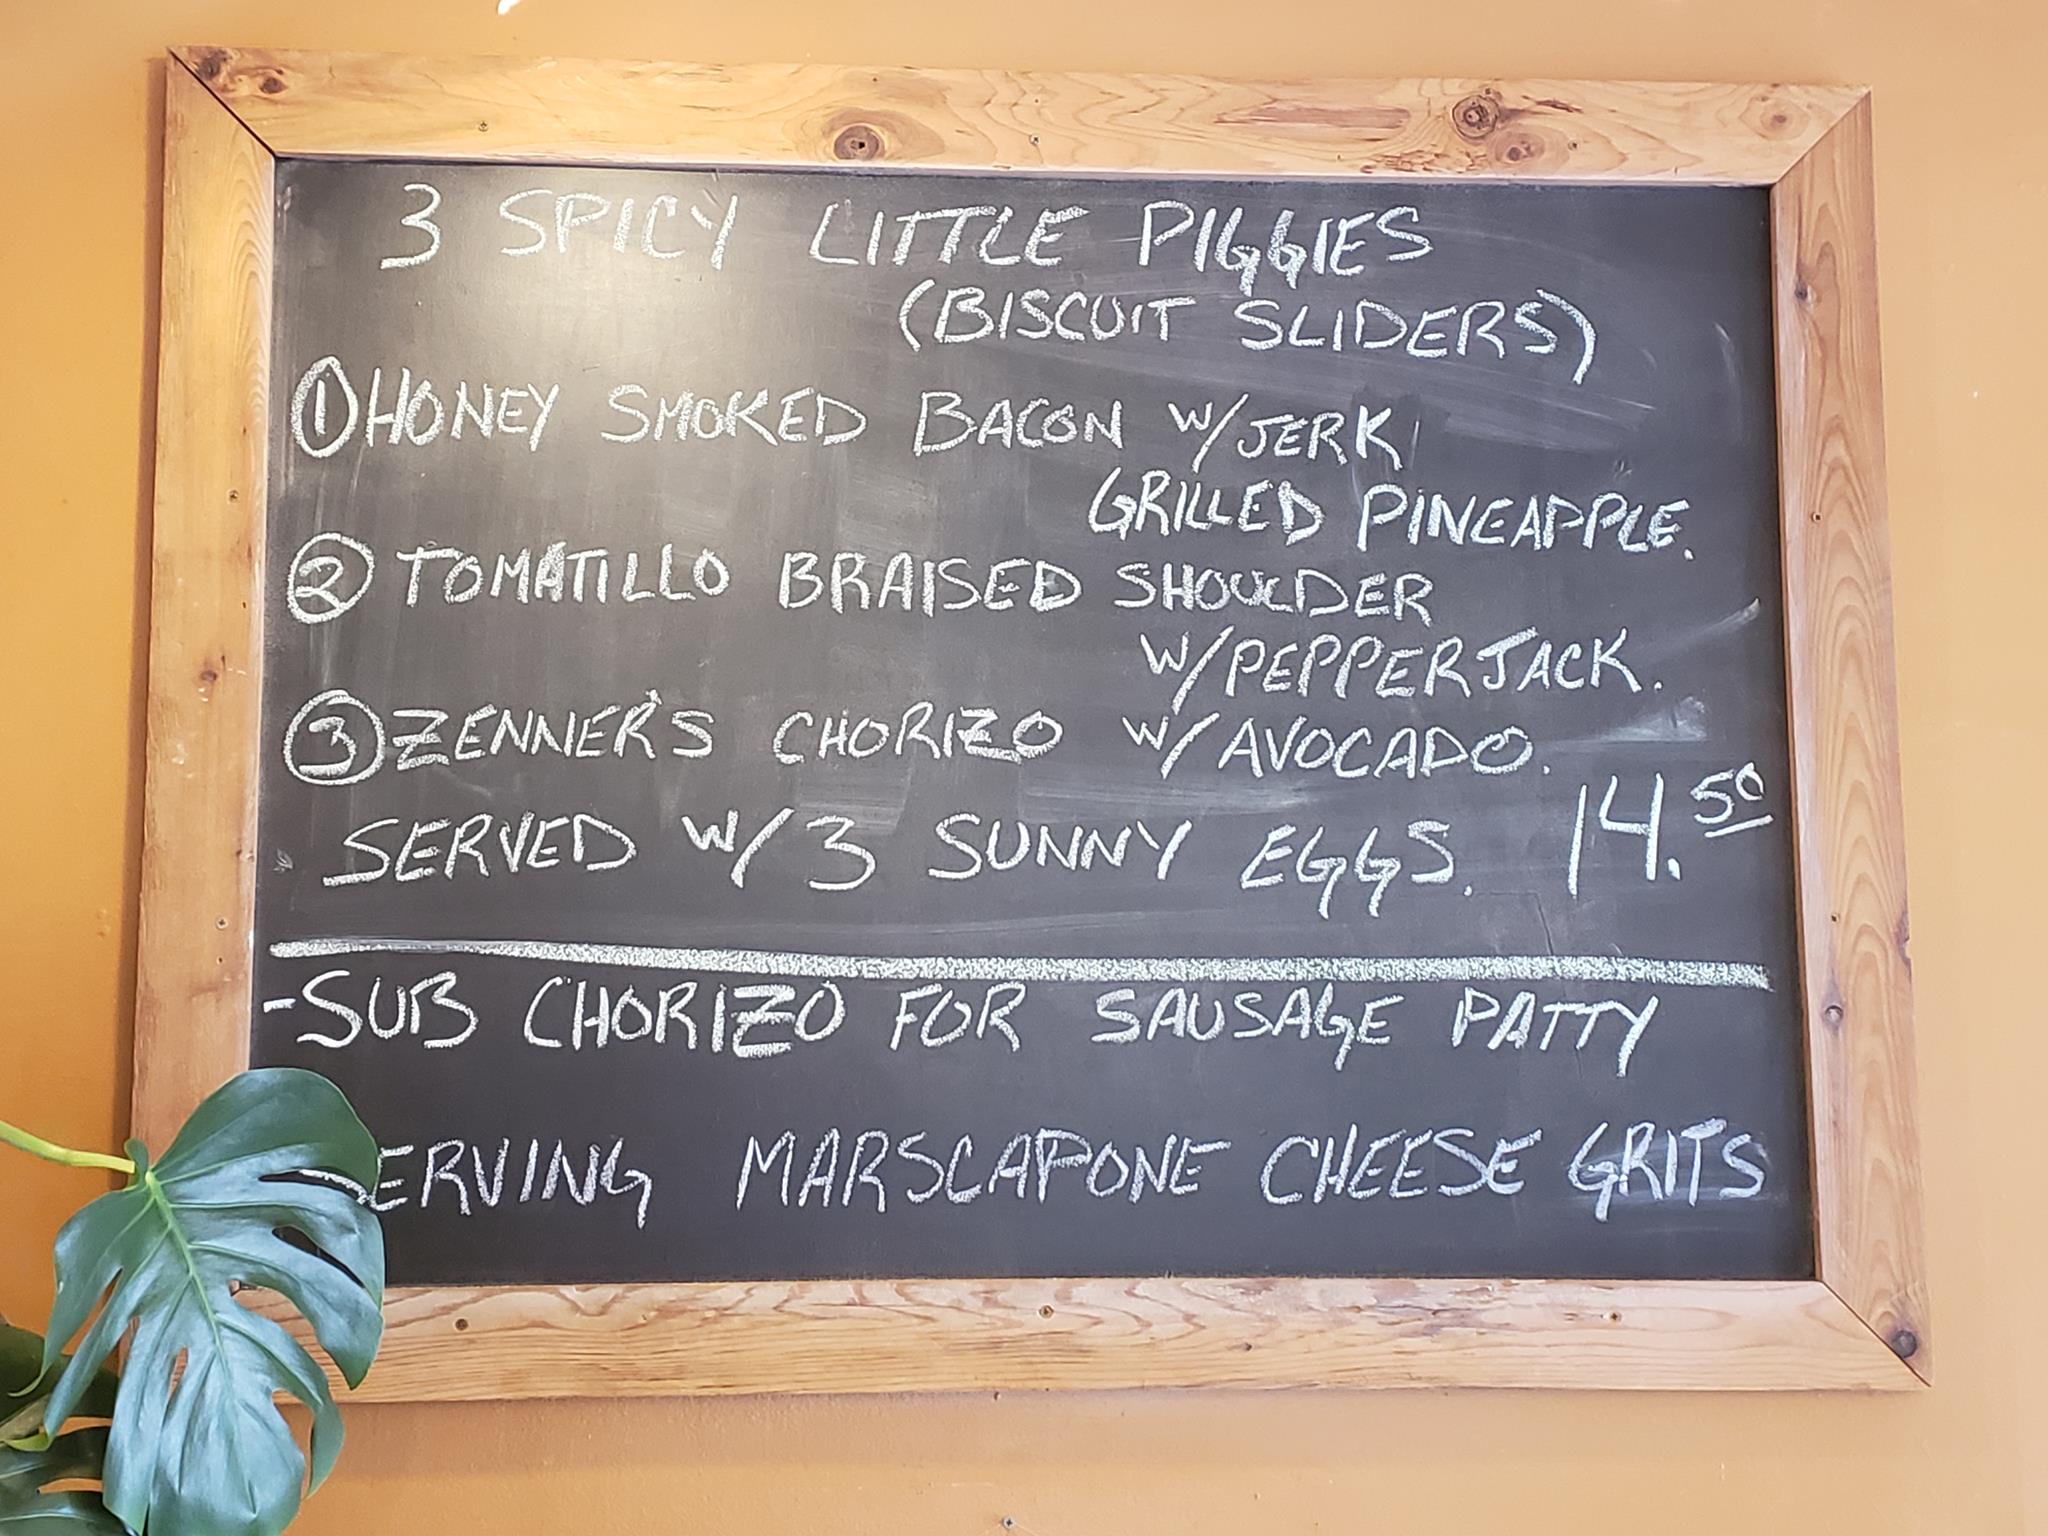 3 SPICY LITTLE PIGGIES
(BISCUIT SLIDERS)
① HONEY SMOKED BACON W/JERK
GRILLED PINEAPPLE.
② TOMATILLO BRAISED SHOULDER
W/PEPPERJACK.
③ ZENNER'S CHORIZO W/AVOCADO.
SERVED W/3 SUNNY EGGS. 14.50
-SUB CHORIZO FOR SAUSAGE PATTY
SERVING MARSCAPONE CHEESE GRITS